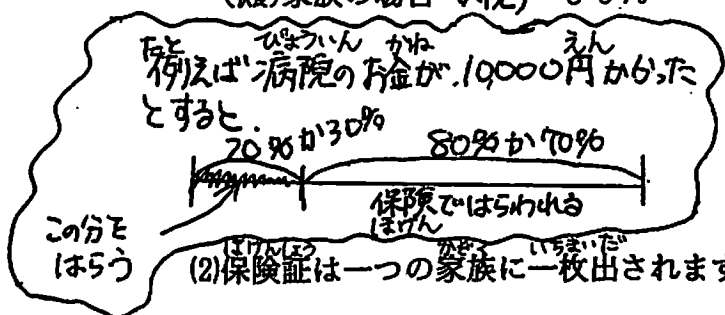 例えば病院のお金が、10,000円かかった
とすると、
20%か30% 80%か70%
保険ではらわれる
この分を
はらう
(2)保険証は一つの家族に一枚出されます